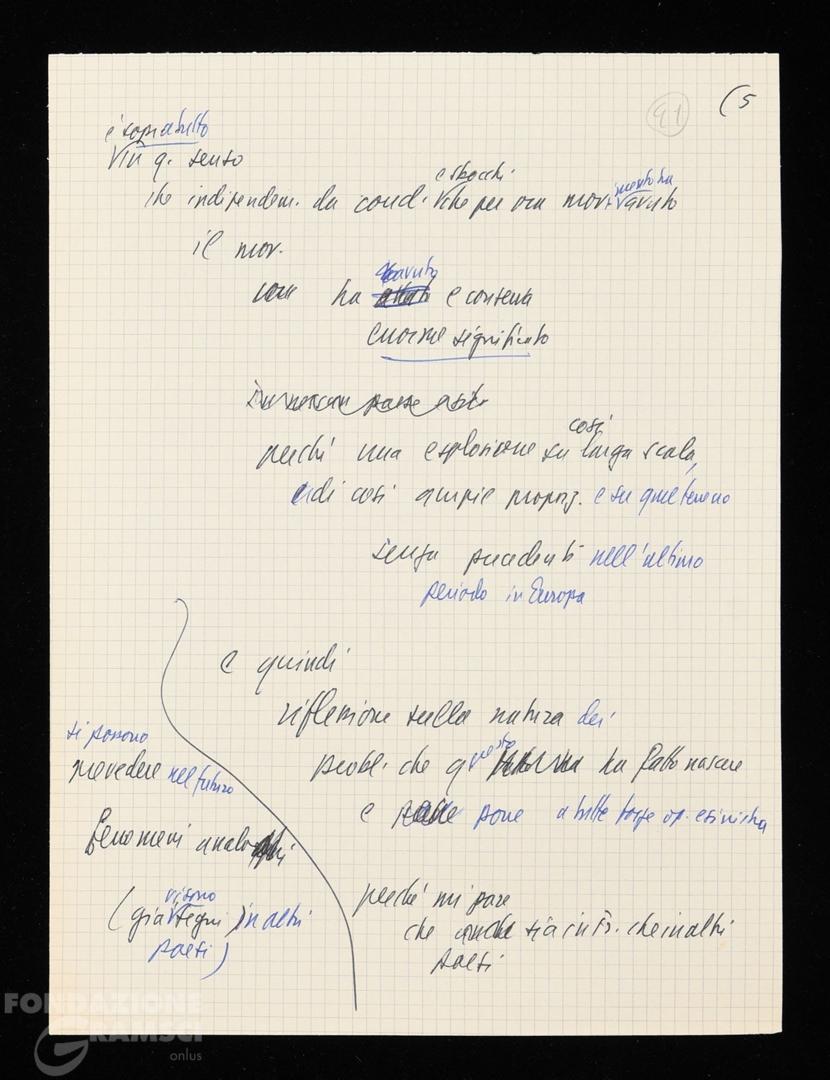 91 (5
è soprattutto
in q. senso
e sbocchi
che indipendem. da cond. che per ora mov. imento ha avuto
il mov.
ha avuto e conserva
enorme significato
così
perché una esplosione su larga scala,
di così ampie proporz. e su quel terreno
senza precedenti nell'ultimo
periodo in Europa
e quindi
riflessione sulla natura dei
probl. che questo ha fatto nascere
e pone a tutte forze op. e sinistra
si possono
prevedere nel futuro
fenomeni analoghi
(già vi sono segni in altri
paesi)
perché mi pare
che sia in Fr. che in altri
paesi
FONDAZIONE
GRAMSCI
onlus